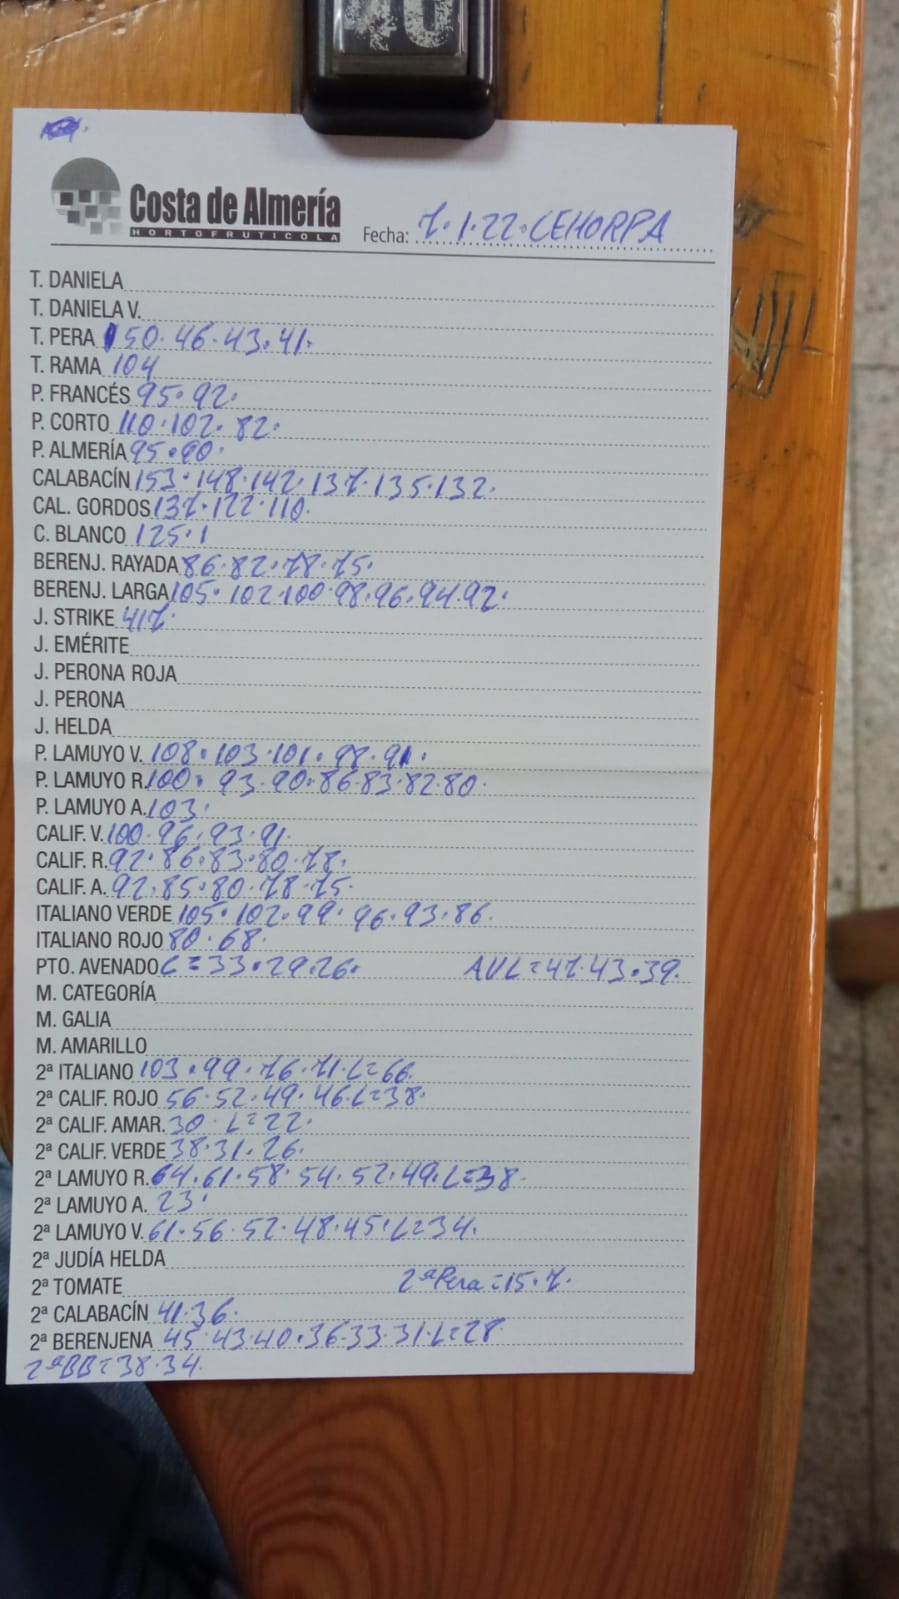 Costa de Almería
HORTOFRUTICOLA
Fecha: 7.1.22.CEHORPA
T. DANIELA
T. DANIELA V.
T. PERA 50.46.43.41.
T. RAMA 104
P. FRANCÉS 95.92.
P. CORTO 110.102.82.
P. ALMERÍA 95.90.
CALABACÍN 153.148.142.137.135.132.
CAL. GORDOS 137.122.110.
C. BLANCO 125.1
BERENJ. RAYADA 86.82.78.75.
BERENJ. LARGA 105.102.100.98.96.94.92.
J. STRIKE 417.
J. EMÉRITE
J. PERONA ROJA
J. PERONA
J. HELDA
P. LAMUYO V. 108.103.101.98.91.
P. LAMUYO R. 100.93.90.86.83.82.80.
P. LAMUYO A. 103.
CALIF. V. 100.96.93.91.
CALIF. R. 92.86.83.80.78.
CALIF. A. 92.85.80.78.75.
ITALIANO VERDE 105.102.99.96.93.86.
ITALIANO ROJO 80.68.
PTO. AVENADO C=33.29.26. AVL=47.43.39.
M. CATEGORÍA
M. GALIA
M. AMARILLO
2ª ITALIANO 103.99.76.71.L=66.
2ª CALIF. ROJO 56.52.49.46.L=38.
2ª CALIF. AMAR. 30.L=22.
2ª CALIF. VERDE 38.31.26.
2ª LAMUYO R. 64.61.58.54.52.49.L=38.
2ª LAMUYO A. 23.
2ª LAMUYO V. 61.56.52.48.45.L=34.
2ª JUDÍA HELDA
2ª TOMATE 2ªPera=15.7.
2ª CALABACÍN 41.36.
2ª BERENJENA 45.43.40.36.33.31.L=28.
2ªBB=38.34.